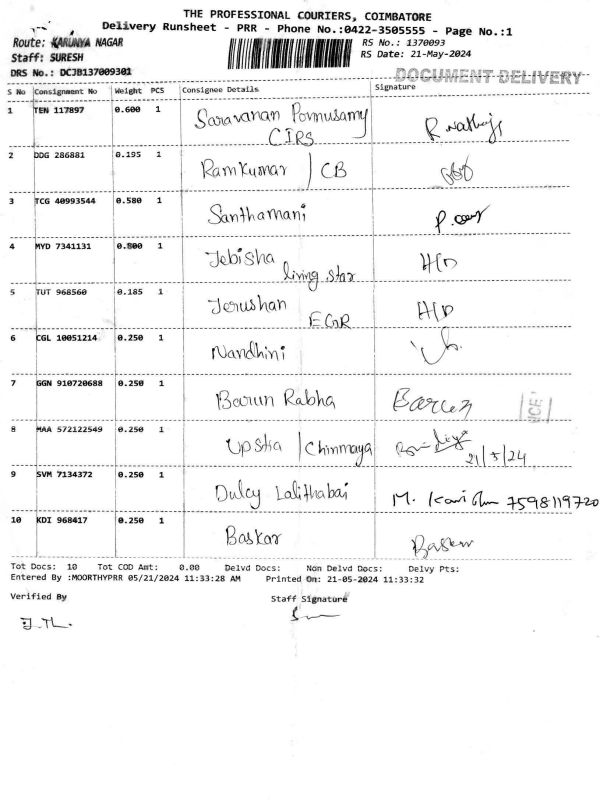 THE PROFESSIONAL COURIERS, COIMBATORE
Delivery Runsheet - PRR - Phone No.:0422-3505555 - Page No.:1
Route: KARUNYA NAGAR
RS No.: 1370093
Staff: SURESH
RS Date: 21-May-2024
DRS No.: DCJB137009301
DOCUMENT DELIVERY
S No Consignment No Weight PCS Consignee Details Signature
1 TEN 117897 0.600 1 Saravanan Ponnusamy
CIRS
2 DDG 286881 0.195 1 Ramkumar / CB
3 TCG 40993544 0.580 1 Santhamani
4 MYD 7341131 0.800 1 Jebisha living star H/D
5 TUT 968560 0.185 1 Jerushan EGR H/D
6 CGL 10051214 0.250 1 Nandhini
7 GGN 910720688 0.250 1 Barun Rabha Barun
8 MAA 572122549 0.250 1 / Chinmaya 21/5/24
9 SVM 7134372 0.250 1 Dulcy Lalithabai M. 7598119720
10 KDI 968417 0.250 1 Baskar Baskar
Tot Docs: 10 Tot COD Amt: 0.00 Delvd Docs: Non Delvd Docs: Delvy Pts:
Entered By :MOORTHYPRR 05/21/2024 11:33:28 AM Printed On: 21-05-2024 11:33:32
Verified By Staff Signature